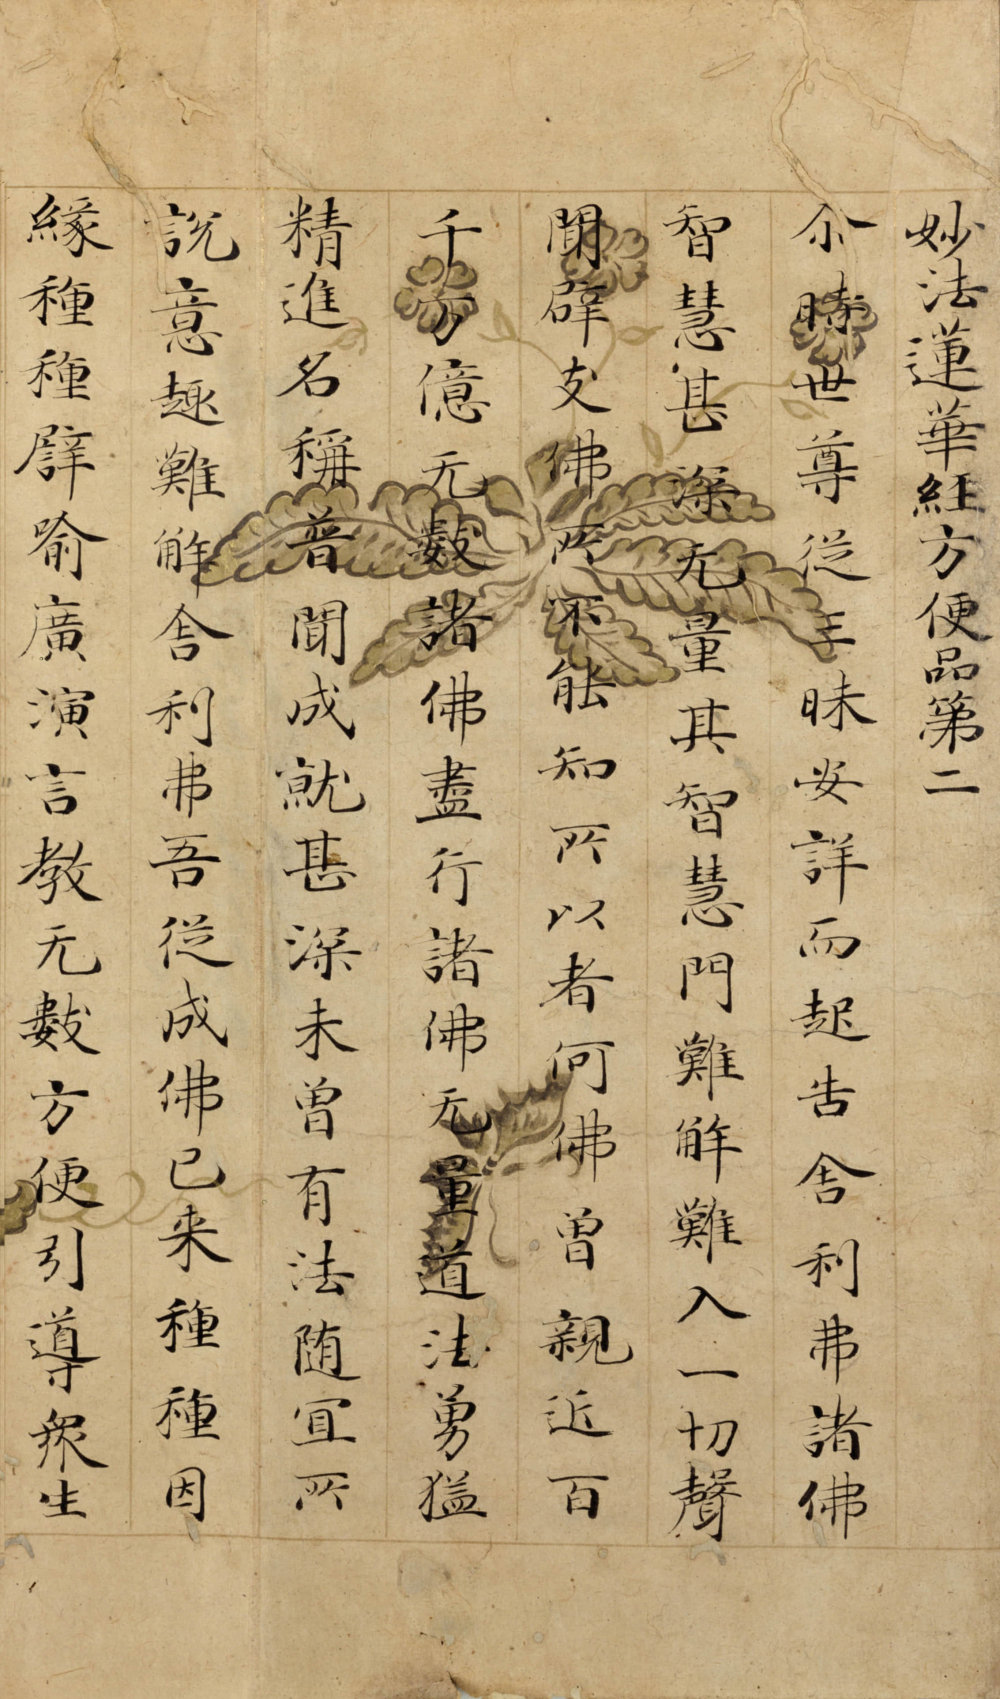 妙法蓮華經方便品第二
尒時世尊從三昧安詳而起告舍利弗諸佛
智慧甚深无量其智慧門難解難入一切聲
聞辟支佛所不能知所以者何佛曾親近百
千万億无數諸佛盡行諸佛无量道法勇猛
精進名稱普聞成就甚深未曾有法随宜所
說意趣難解舍利弗吾從成佛已来種種因
緣種種譬喻廣演言教无數方便引導衆生